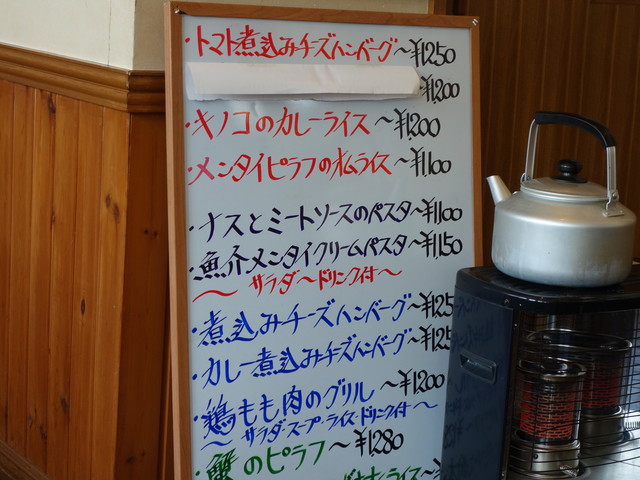 ・トマト煮込みチーズハンバーグ〜¥1250
¥1200
・キノコのカレーライス〜¥1,200
・メンタイピラフのオムライス〜¥1,100
・ナスとミートソースのパスタ〜¥1100
・魚介メンタイクリームパスタ〜¥1,150
〜サラダ〜ドリンク付〜
・煮込みチーズハンバーグ〜¥125
・カレー煮込みチーズハンバーグ〜¥125
・鶏もも肉のグリル〜¥1200
〜サラダスープライスドリンク付〜
・蟹のピラフ〜¥1280
ライス〜